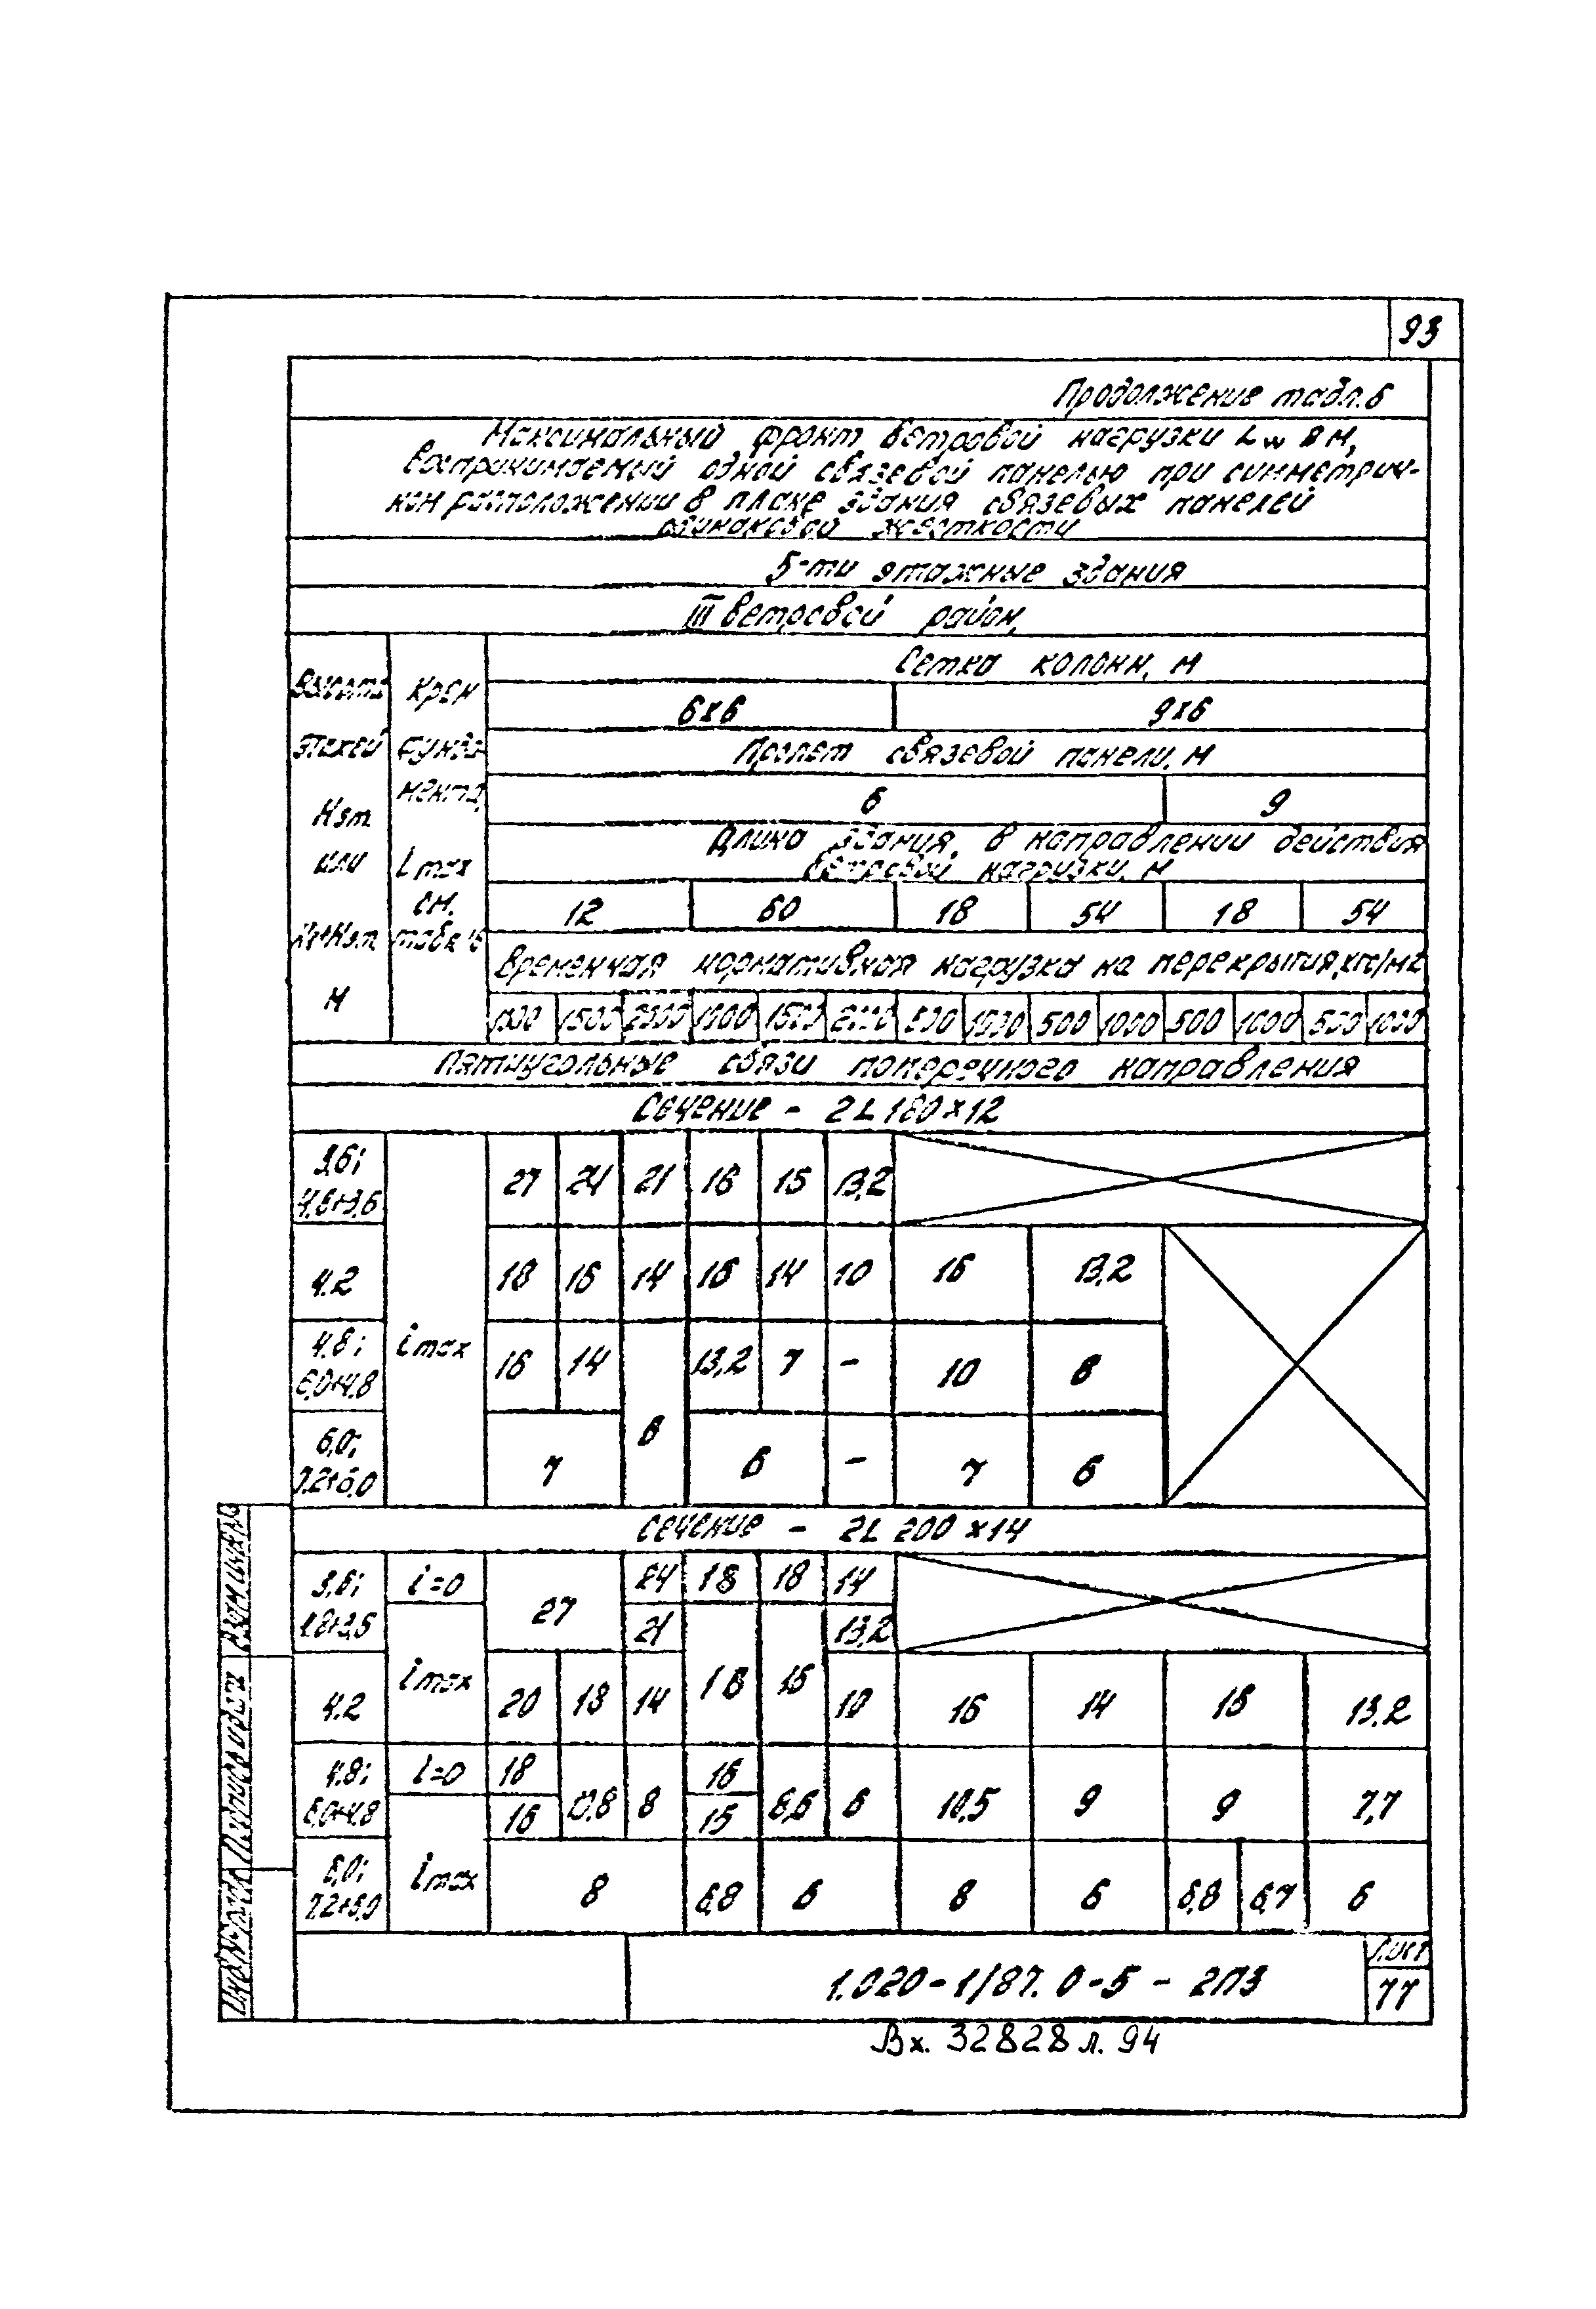 93
Продолжение табл. 6
Максимальный фронт ветровой нагрузки Lw в м,
воспринимаемый одной связевой панелью при симметрич-
ном расположении в плане здания связевых панелей
одинаковой жесткости
5-ти этажные здания
III ветровой район,
Высота этажей Нэт или М
Крен фунда- мента, imax см. табл.
Сетка колонн, м
6х6 9х6
Пролет связевой панели, м
6 9
Длина здания, в направлении действия
ветровой нагрузки, м
12 60 18 54 18 54
Временная нормативная нагрузка на перекрытия, кгс/м2
1000 1500 2000 1000 1500 2000 500 1000 500 1000 500 1000 500 1000
Пятиугольные связи поперечного направления
Сечение - 2L 180×12
3,6; 4,8+3,6 27 24 21 16 15 13,2
4.2 18 16 14 16 14 10 16 13,2
4.8; 6,0+4,8 imax 16 14 13,2 7 - 10 8
6,0; 7,2+6,0 7 6 6 - 7 6
Сечение - 2L 200×14
3,6; 4,8+3,6 i=0 27 24 18 18 14
21 13,2
4.2 imax 20 18 14 18 16 10 16 14 16 13,2
4.8; 6,0+4,8 i=0 18 10,8 8 16 8,6 6 10,5 9 9 7,7
16 15
6,0; 7,2+6,0 imax 8 6,8 6 8 6 6,8 6,7 6
Инв. № подл. Подпись и дата Взам. инв. №
1.020-1/87. 0-5 - 2ПЗ
Лист
77
Вх. 32828 л. 94